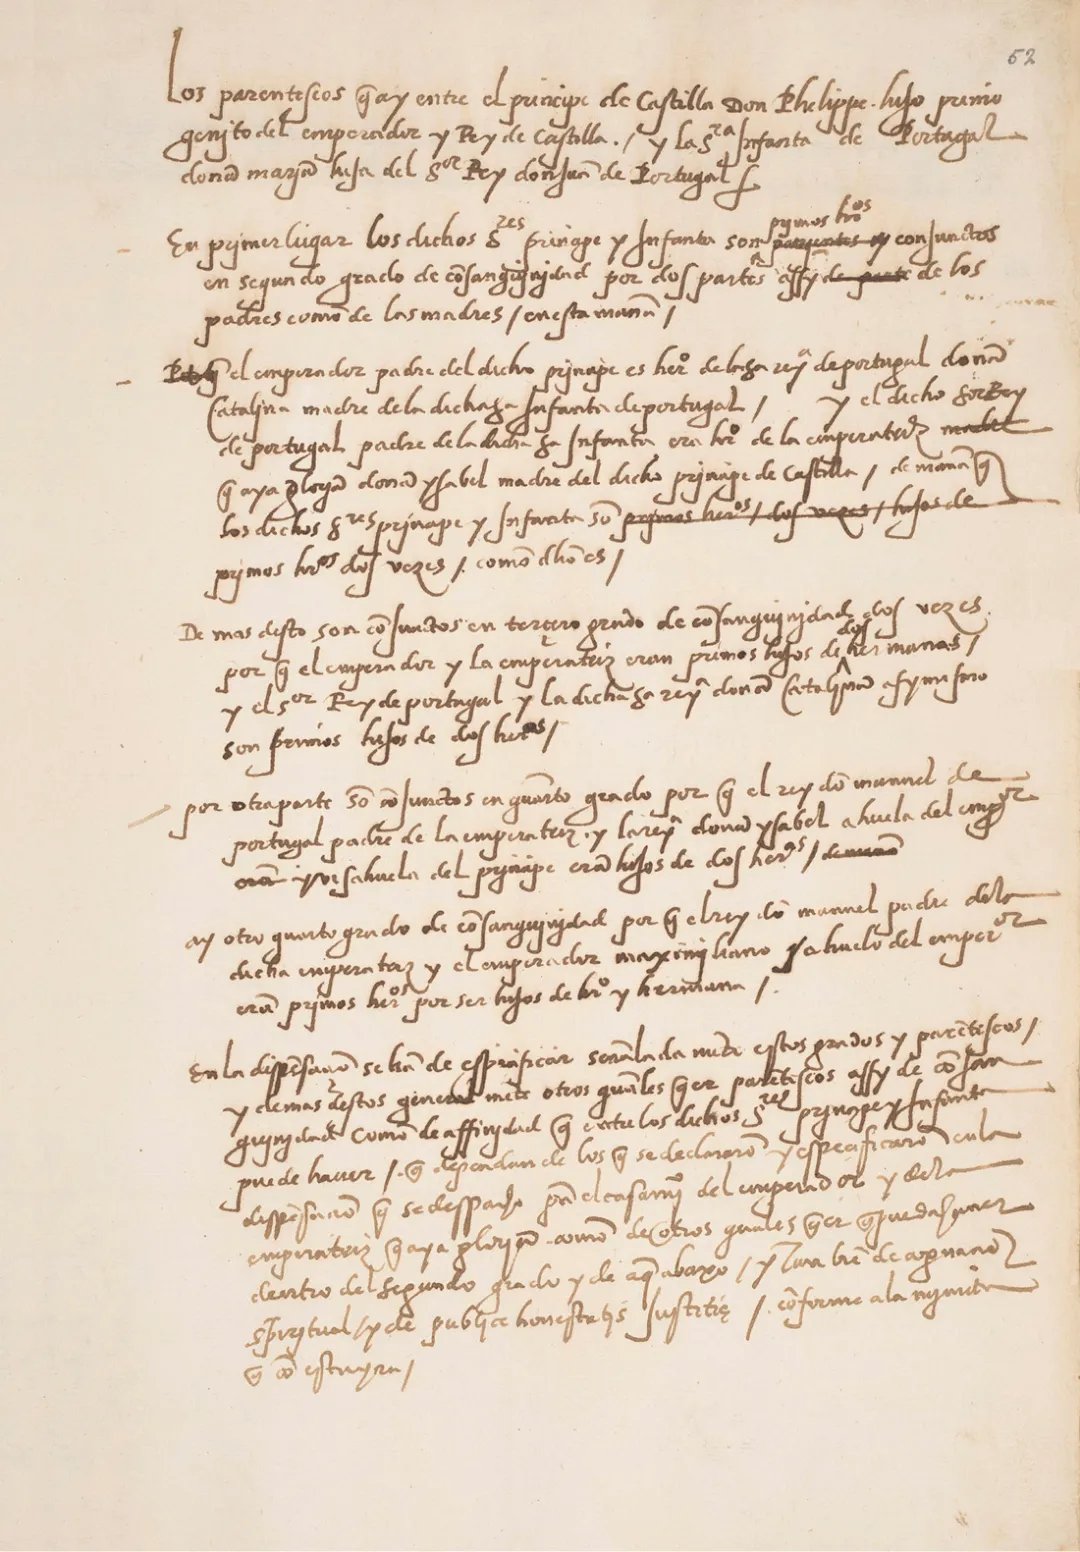 62
Los parentescos q̃ ay entre el principe de Castilla Don Phelippe hijo primo
genito del emperador y Rey de Castilla . / y la s.ra Infanta de Portugal
doña maria hija del s.or Rey don juã de Portugal
primos hr̃os
En primer lugar los dichos s.res principe y Infanta son parientes conjunctos
en segundo grado de cõsanguinidad por dos partes assy de parte de los
padres como de las madres / en esta maña /
q̃ el emperador padre del dicho principe es her.o de la s.a reyª de portugal doña
Catalina madre de la dicha s.a Infanta de portugal / y el dicho s.or Rey
de portugal padre de la dicha s.a Infanta era hr.o de la emperatriz madre
q̃ aya gloria doña ysabel madre del dicho principe de Castilla / de maña q̃
los dichos s.res principe y Infanta sõ primos her.os / dos vezes / hijos de
primos hr.os dos vezes / como dho es /
De mas desto son cõjunctos en tercero grado de cõsanguinidad dos vezes
dos
por q̃ el emperador y la emperatriz eran primos hijos de hermanas /
y el s.or Rey de portugal y la dicha s.a reyª doña Catalina asymismo
son primos hijos de dos her.as /
por otra parte sõ cõjunctos en quarto grado por q̃ el rey dõ manuel de
portugal padre de la emperatriz y la reyª doña ysabel ahuela del emp.or
erã y visahuela del principe erã hijos de dos her.as /
ay otro quarto grado de cõsanguinidad por q̃ el rey dõ manuel padre de la
dicha emperatriz y el emperador maximiliano ahuelo del emper.or
erã primos her.os por ser hijos de hr.o y hermana /
En la dispẽsaciõ se hã de espicificar señalada mẽte estos grados y parẽtescos /
y demas destos general mẽte otros quales q̃er parẽtescos assy de cõsan
guinidad como de affinidad q̃ entre los dichos s.res principe y Infanta
puede haver / q̃ dependan de los q̃ se declararõ y especificarõ en la
dispẽsaciõ q̃ se despacho pã el casamiº del emperador y de la
emperatriz q̃ aya gloria como de otros quales q̃er q̃ pueda haver
dentro del segundo grado y de aq̃ abaxo / y tan biẽ de cognaciõ
spiritual / y de publice honestatis justitię / cõforme a la minuta
q̃ cõ esta yra /